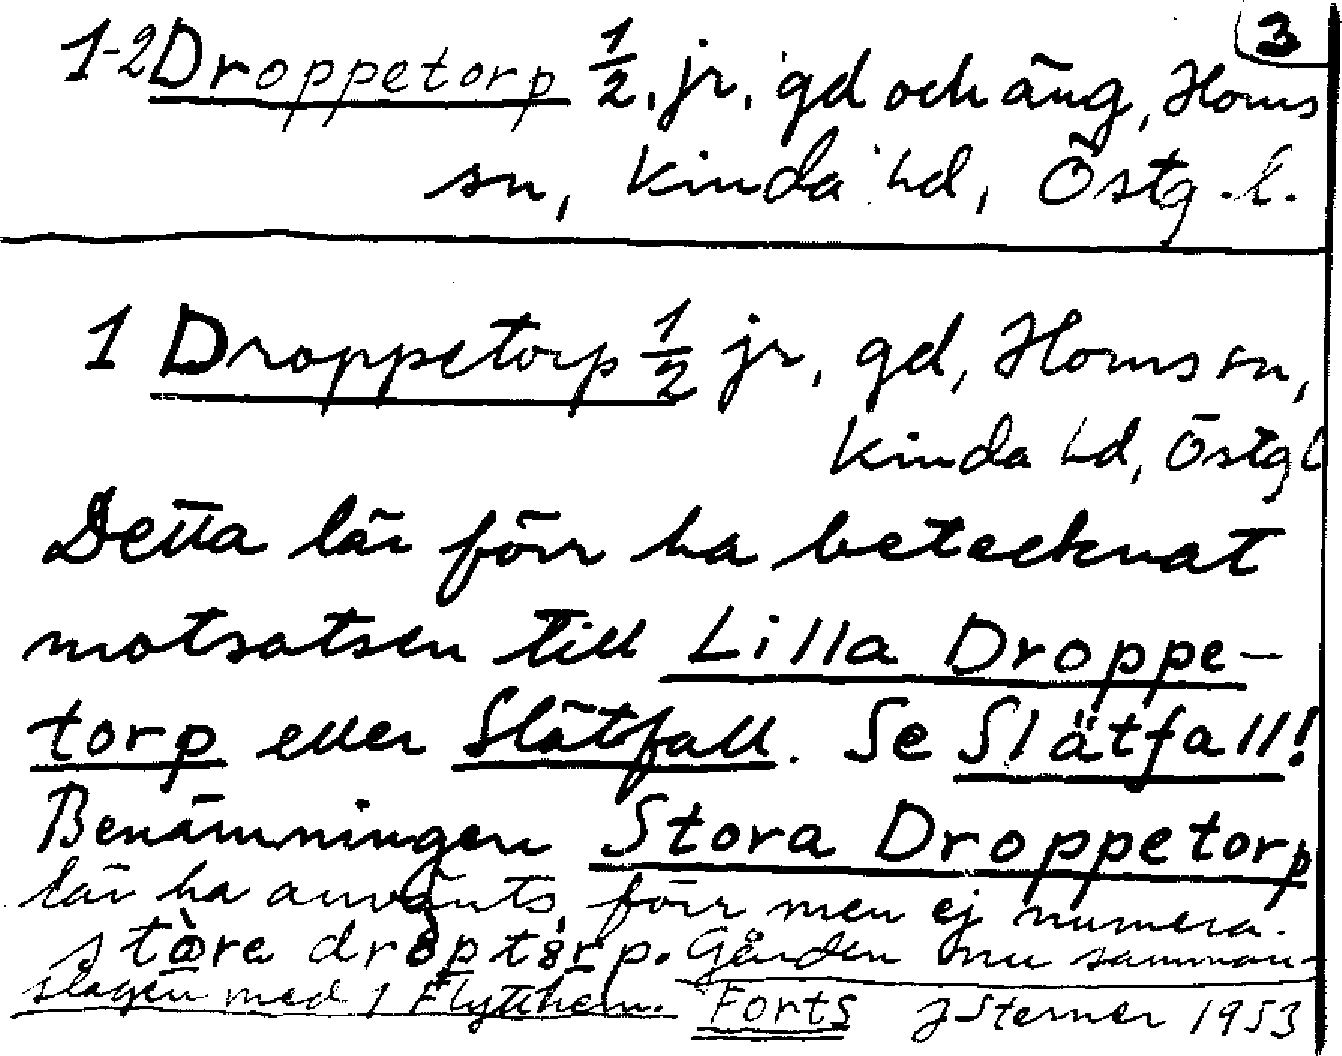 3
1-2 Droppetorp 1/2, jr, gd och äng, Horns
sn, Kinda hd, Östg.l.
1 Droppetorp 1/2 jr, gd, Horns sn,
Kinda hd, Östg l
Detta lär förr ha betecknat
motsatsen till Lilla Droppe-
torp eller Slätfall. Se Slätfall!
Benämningen Stora Droppetorp
lär ha använts förr men ej numera.
stàre dròptòrp. Gården nu samman-
slagen med 1 Flytthem. Forts J Sterner 1953